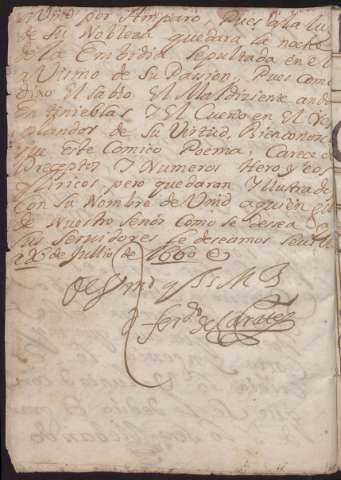 Vmd por Amparo, Pues a la luz
de Su Nobleza quedara la noche
de la Embidia Sepultada en el
Avismo de Su Passion, Pues como
dixo El Sabio El Maldiziente anda
En tinieblas Y El Cuerdo en El
plandor de Su Virtud, Reconozco
que Este Comico Poema, Carece
Preceptos Y Numeros Heroycos,
Liricos, pero quedaran Yllustrados
Con Su Nombre de Vmd a quien
de Nuestro Señor Como Se desea
Sus Servidores le deseamos
de Julio de 1660
De Vmd q S M B
Ferdo de Zarate